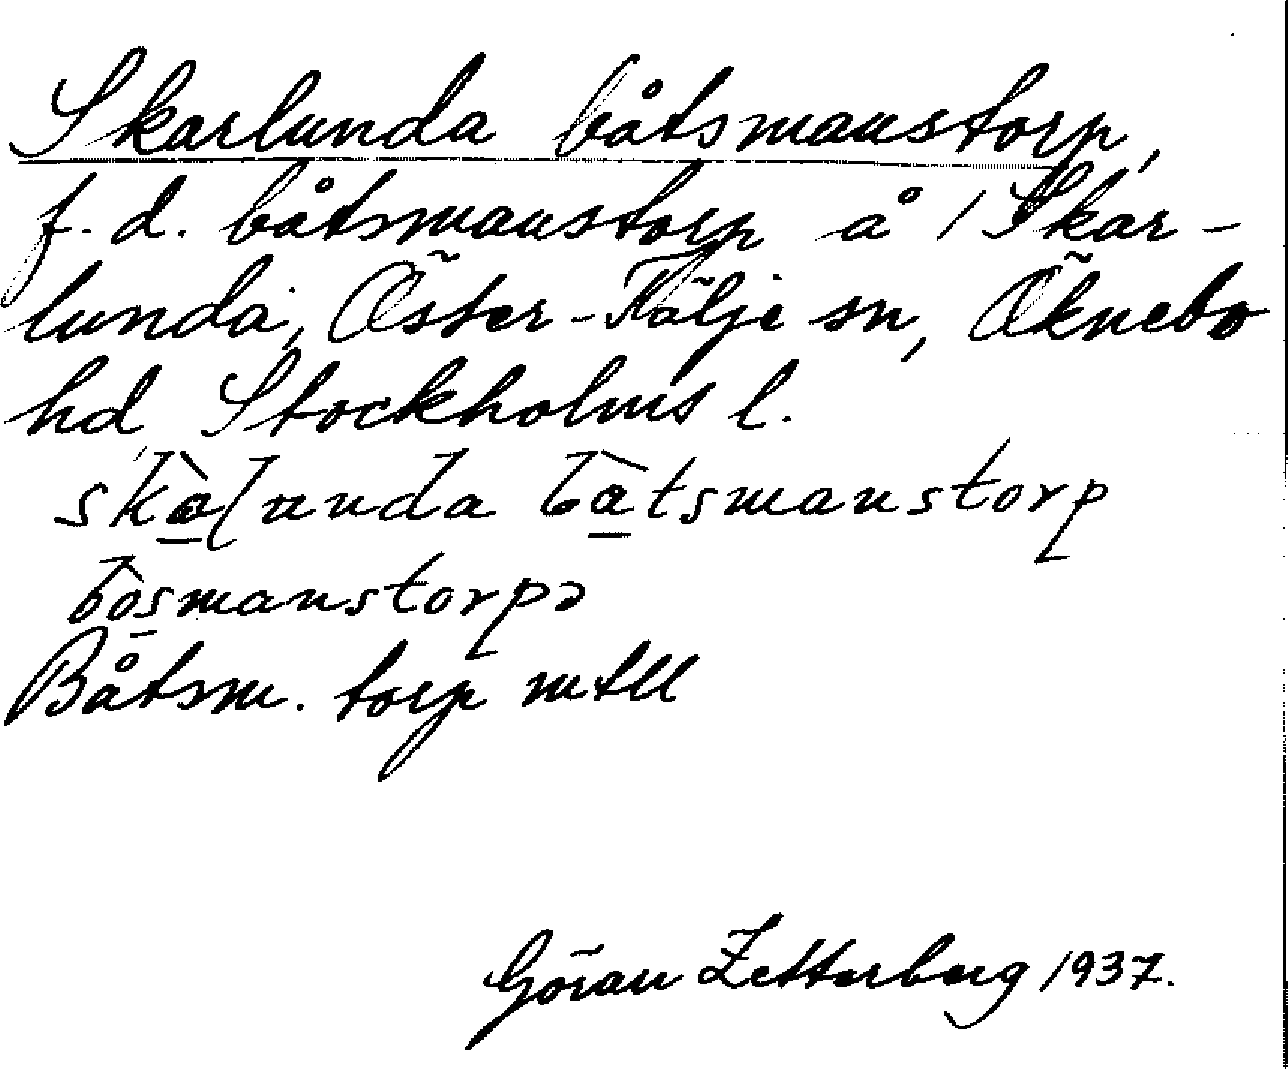 Skarlunda båtsmanstorp,
f.d. båtsmanstorp å 1 Skar-
lunda, Öster-Tälje sn, Öknebo
hd Stockholms l.
båtsmanstorp
båsmanstorpə
Båtsm. torp mtll
Göran Zetterberg 1937.